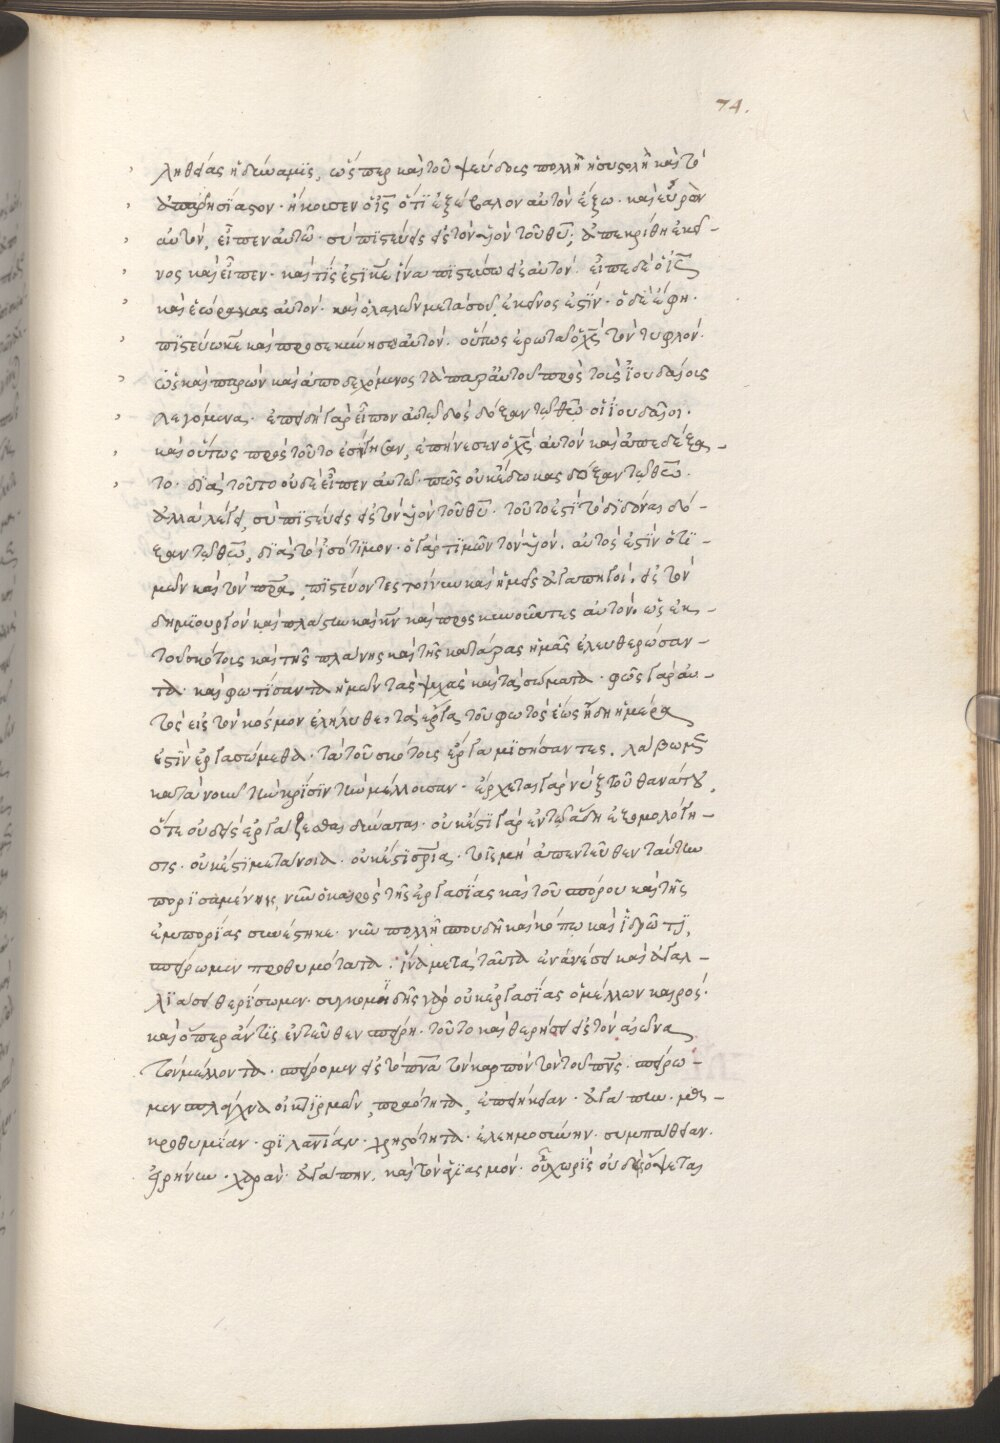 74.
ληθείας ἡ δύναμις, ὥσπερ καὶ τοῦ ψεύδους πολλὴ ἡ συστολὴ καὶ τὸ
ἀπαρησίαστον. ἤκουσεν ὁ ἰς̅ ὅτι ἐξέβαλον αὐτὸν ἔξω. καὶ εὑρὼν
αὐτὸν, εἶπεν αὐτῷ. σὺ πιστεύεις εἰς τὸν υἱὸν τοῦ θυ̅; ἀπεκρίθη ἐκεῖ-
νος καὶ εἶπεν. καὶ τίς ἐστι κε̅ ἵνα πιστεύσω εἰς αὐτόν. εἶπε δὲ ὁ ἰς̅
καὶ ἑώρακας αὐτόν. καὶ ὁ λαλῶν μετὰ σοῦ, ἐκεῖνος ἐστίν. ὁ δὲ ἔφη.
πιστεύω κε̅ καὶ προσεκύνησεν αὐτόν. οὕπως ἐρωτᾶ ὁ χς̅ τὸν τυφλόν.
ὡς καὶ παρὼν καὶ ἀποδεχόμενος τὰ παρ' αὐτοῦ πρὸς τοὺς ἰουδαίους
λεγόμενα. ἐπειδὴ γὰρ εἶπον αὐτῷ δὸς δόξαν τῷ θεῷ οἱ ἰουδαῖοι.
καὶ οὕτως πρὸς τοῦτο ἐσίγησεν, ἐπήνεσεν ὁ χς̅ αὐτὸν καὶ ἀπεδέξα-
το. διὰ τοῦτο οὐδὲ εἶπεν αὐτῷ. πῶς οὐκ ἔδωκας δόξαν τῷ θεῷ.
ἀλλὰ λέγει, σὺ πιστεύεις εἰς τὸν υἱὸν τοῦ θυ̅. τοῦτο ἐστὶ τὸ διδόναι δό-
ξαν τῷ θεῷ, διὰ τὸ ἰσότιμον. ὁ γὰρ τιμῶν τὸν υἱόν. αὐτὸς ἐστὶν ὁ τι-
μῶν καὶ τὸν πρα̅. πιστεύοντες τοίνυν καὶ ἡμεῖς ἀγαπητοί. εἰς τὸν
δημιουργὸν καὶ πλάστην καὶ κν̅ καὶ προσκυνοῦντες αὐτὸν. ὡς ἐκ-
τοῦ σκότους καὶ τῆς πλάνης καὶ τῆς κατάρας ἡμᾶς ἐλευθερώσαν-
τα. καὶ φωτίσαντα ἡμῶν τὰς ψυχὰς καὶ τὰ σώματα. φῶς γὰρ αὐ-
τὸς εἰς τὸν κόσμον ἐλήλυθε. τὰ ἔργα τοῦ φωτὸς ἕως ἤδη ἡμέρα
ἐστὶν ἐργασώμεθα. τὰ τοῦ σκότους ἔργα μισήσαντες. λάβωμεν
κατὰ νοῦν τὴν κρίσιν τὴν μέλλουσαν. ἔρχεται γὰρ νὺξ τοῦ θανάτου,
ὅτε οὐδεὶς ἐργάζεσθαι δύναται. οὐκ ἔστι γὰρ ἐν τῷ ἅδη ἐξομολόγη-
σις. οὐκ ἔστι μετάνοια. οὐκ ἔστι σρία̅. τοῖς μὴ ἀπεντεῦθεν ταύτην
πορισαμένοις, νῦν ὁ καιρὸς τῆς ἐργασίας καὶ τοῦ σπόρου καὶ τῆς
ἐμπορίας συνέστηκε. νῦν πολλῇ σπουδῇ καὶ κόπῳ καὶ ἱδρῶτι,
σπείρωμεν προθυμότατα. ἵνα μετὰ ταῦτα ἐν ἀνέσει καὶ ἀγαλ-
λιάσει θερίσωμεν. συγκομιδῆς γὰρ οὐκ ἐργασίας ὁ μέλλων καιρός.
καὶ ὅπερ ἄν τις ἐντεῦθεν σπείρῃ. τοῦτο καὶ θερήσει εἰς τὸν αἰῶνα
τὸν μέλλοντα. σπείρομεν εἰς τὸ πνα̅ τὸν καρπὸν τὸν τοῦ πνς̅. σπείρω-
μεν σπλάγχνα οἰκτιρμῶν, πραότητα, ἐπιείκειαν. ἀγάπην. με-
κροθυμίαν. φιλανίαν̅. χρηστότητα. ἐλεημοσύνην. συμπάθειαν.
εἰρήνην. χαράν. ἀγάπην. καὶ τὸν ἁγιασμόν. οὗ χωρὶς οὐδεὶς ὄψεται